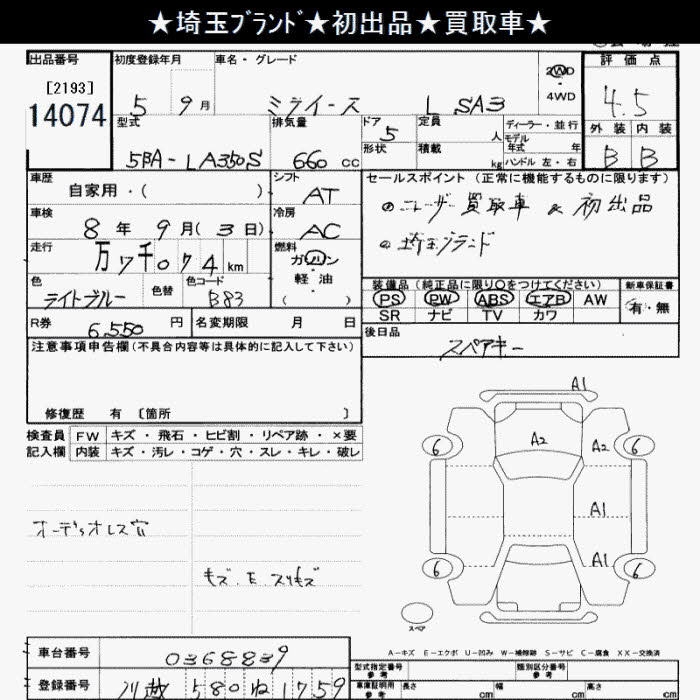 ★埼玉ﾌﾞﾗﾝﾄﾞ★初出品★買取車★
出品番号 初度登録年月 車名・グレード 2WD 評価点
[2193] 5 9月 ミライース L SA3 4WD 4.5
14074 型式 排気量 ドア 定員 人 ディーラー・並行 外装 内装
5 モデル年式 年
5BA-LA350S 660cc 形状 積載 kg ハンドル 左・右 B B
車歴 シフト セールスポイント (正常に機能するものに限ります)
自家用・( ) AT ユーザー買取車 & 初出品
車検 冷房
8年 9月(3日) AC 埼玉ブランド
走行 燃料
万7千074km ガソリン
軽油
( )
装備品 (純正品に限り○をつけてください) 新車保証書
色 色替 色コード PS PW ABS エアB AW 有・無
ライトブルー B83 SR ナビ TV カワ
R券 6,550円 名変期限 月 日 後日品
スペアキー
注意事項申告欄 (不具合内容等は具体的に記入して下さい)
修復歴 有 〔箇所 〕
検査員 FW キズ・飛石・ヒビ割・リペア跡・×要
記入欄 内装 キズ・汚レ・コゲ・穴・スレ・キレ・破レ
A1
6 A2 A2 6
A1
オーディオレス穴
A1
キズ、E スリキズ
6 6
スペア
A-キズ E-エクボ U-凹み W-補修跡 S-サビ C-腐食 XX-交換済
車台番号 0368839 型式指定番号 参考 類別区分番号 参考
登録番号 川越 580 ね 1759 車庫証明用 参考 長さ cm 幅 cm 高さ cm